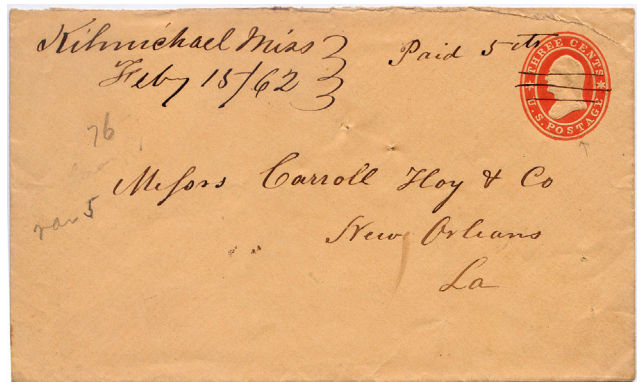 Kilmichael Miss
Feby 15/62
Paid 5 cts
THREE CENTS
U.S. POSTAGE
76
5
Messrs Carroll Hoy & Co
New Orleans
La